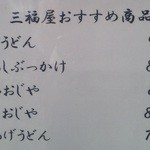 三福屋おすすめ商品
うどん
しぶっかけ
おじや
おじや
げうどん